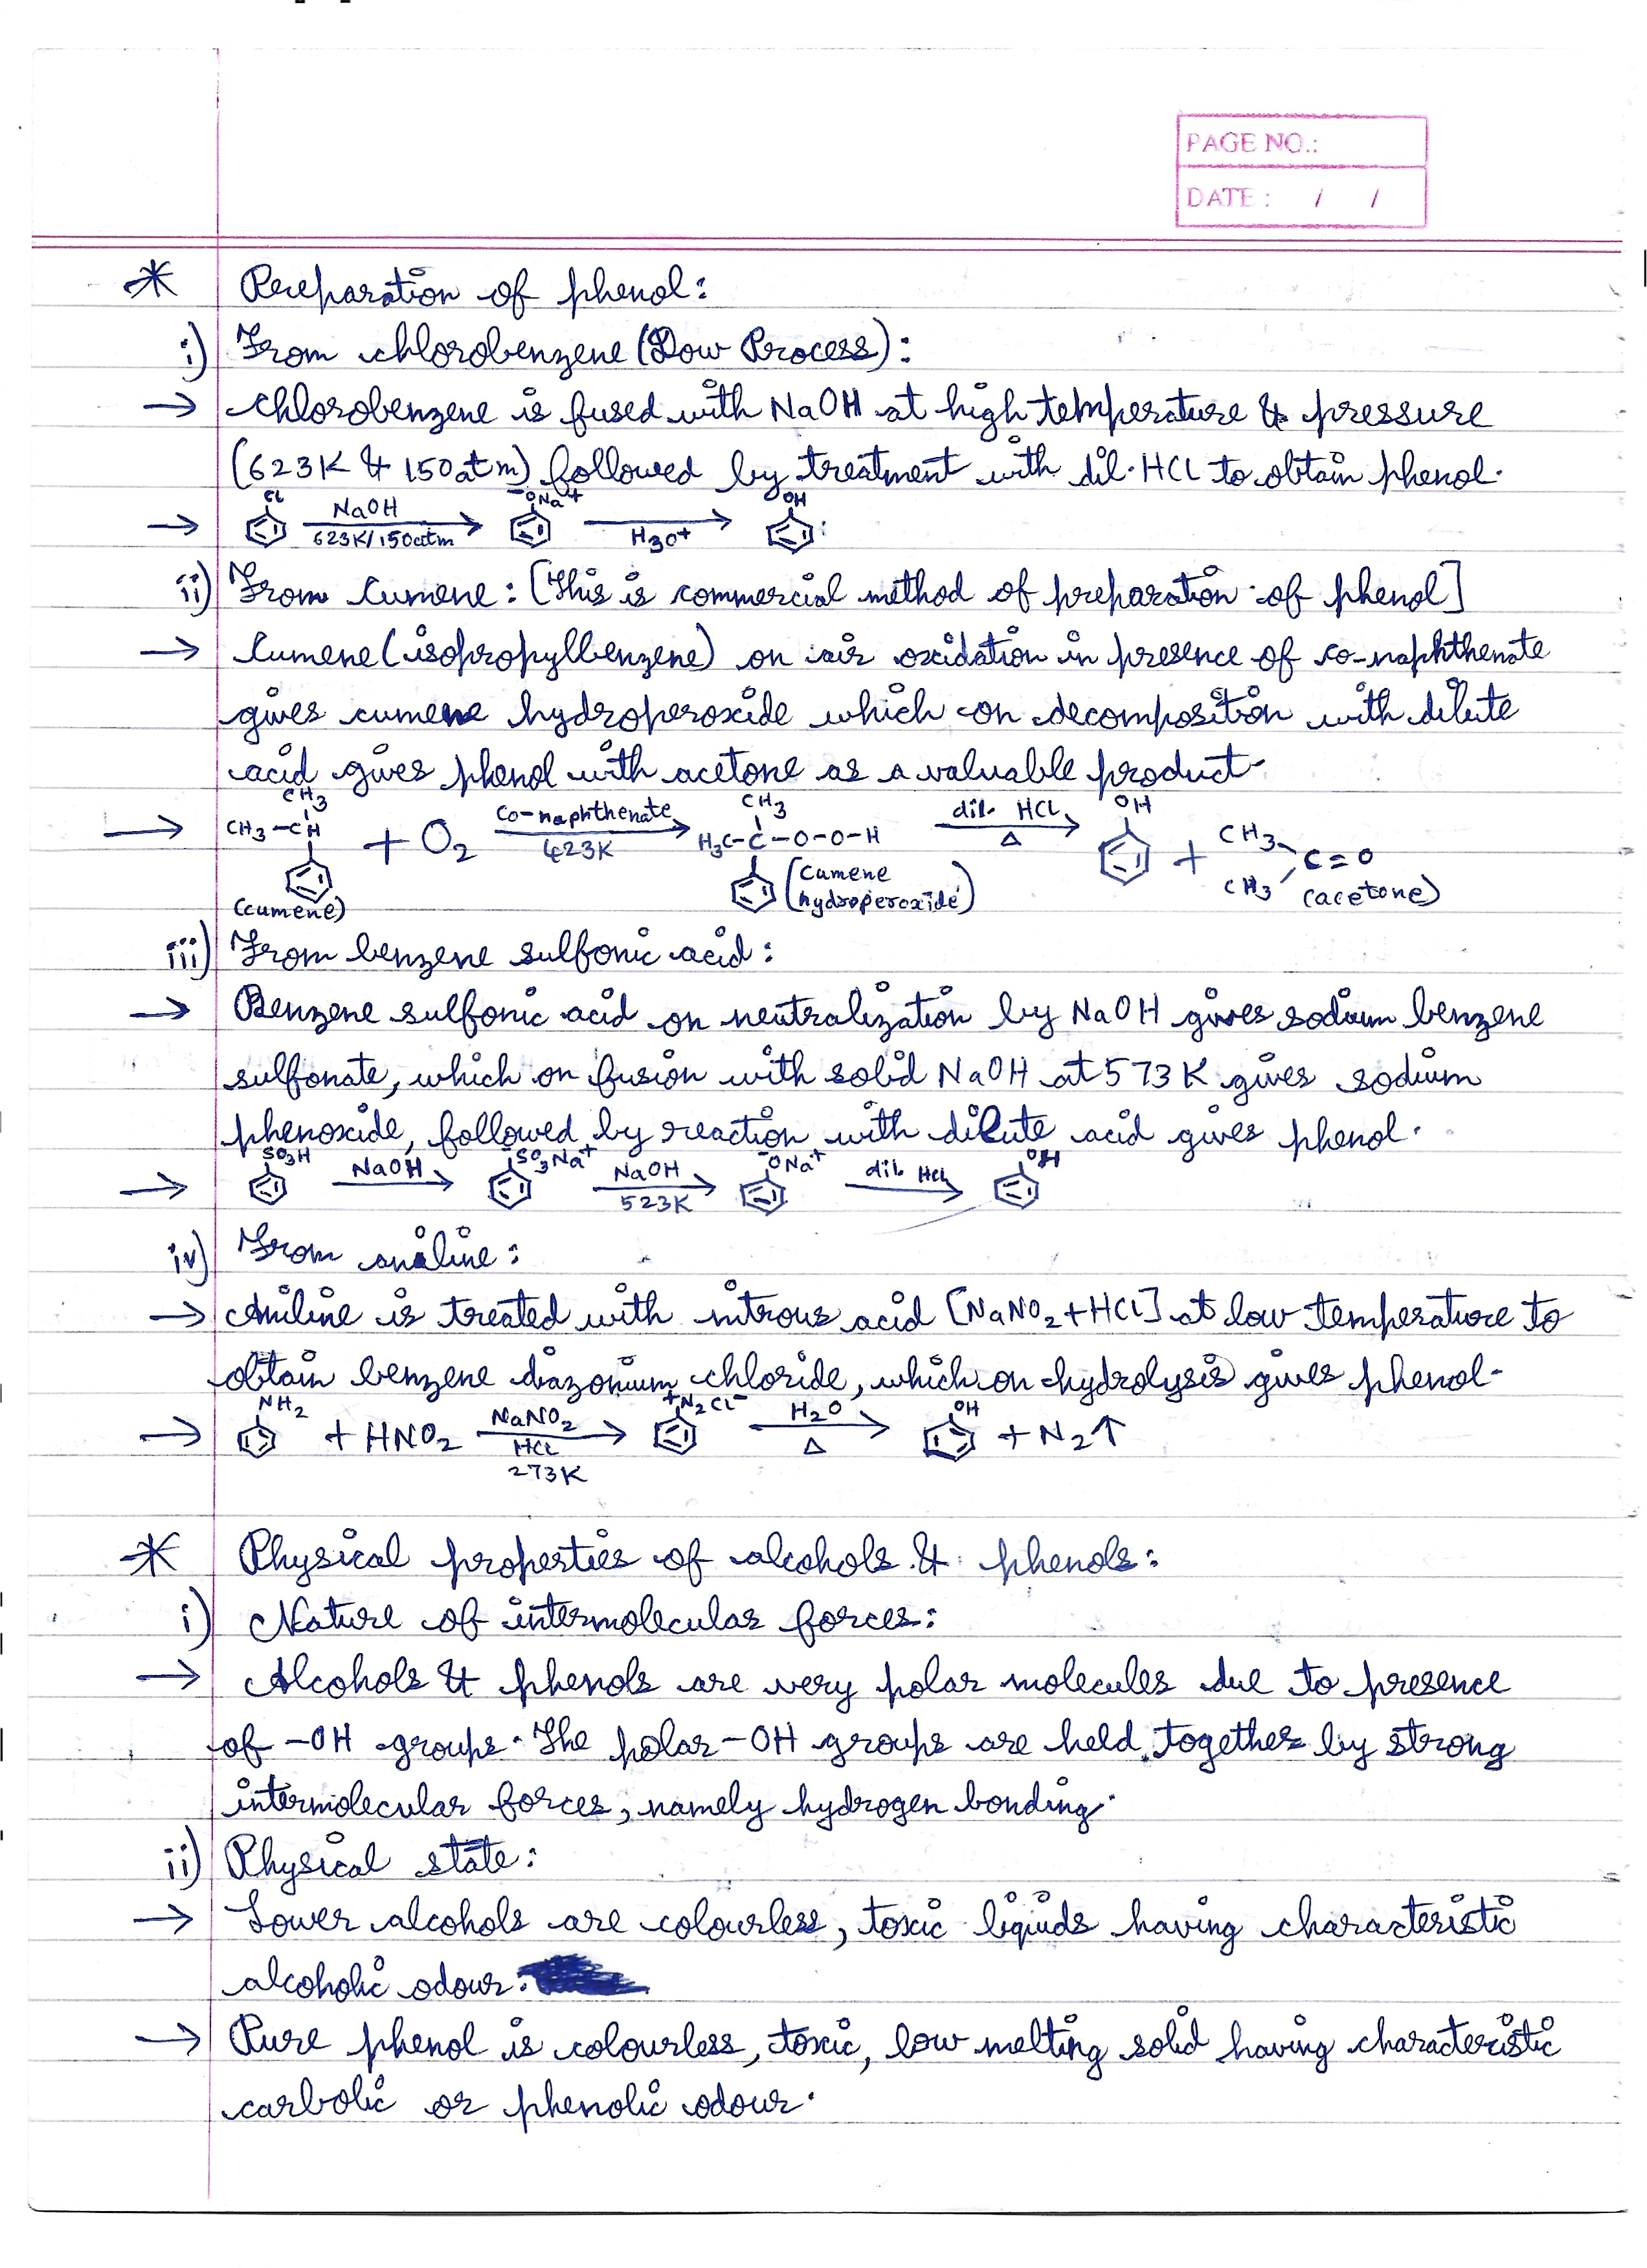 PAGE NO.:
DATE: / /
* Preparation of phenol:
i) From chlorobenzene (Dow Process):
→ chlorobenzene is fused with NaOH at high temperature & pressure
(623K & 150atm) followed by treatment with dil. HCl to obtain phenol.
→ Cl NaOH 623K/150atm → ⁻ONa⁺ H3O+ → OH
ii) From Cumene: [This is commercial method of preparation of phenol]
→ Cumene (isopropylbenzene) on air oxidation in presence of co-naphthenate
gives cumene hydroperoxide which on decomposition with dilute
acid gives phenol with acetone as a valuable product.
→ CH3 CH3-CH (cumene) + O2 Co-naphthenate 423K → CH3 H3C-C-O-O-H (Cumene hydroperoxide) dil. HCl Δ → OH + CH3 CH3 C=O (acetone)
iii) From benzene sulfonic acid:
→ Benzene sulfonic acid on neutralization by NaOH gives sodium benzene
sulfonate, which on fusion with solid NaOH at 573K gives sodium
phenoxide, followed by reaction with dilute acid gives phenol.
→ SO3H NaOH → ⁻SO3Na⁺ NaOH 523K → ⁻ONa⁺ dil. HCl → OH
iv) From aniline:
→ Aniline is treated with nitrous acid [NaNO2+HCl] at low temperature to
obtain benzene diazonium chloride, which on hydrolysis gives phenol.
→ NH2 + HNO2 NaNO2 HCl 273K → +N2Cl⁻ H2O Δ → OH + N2↑
* Physical properties of alcohols & phenols:
i) Nature of intermolecular forces:
→ Alcohols & phenols are very polar molecules due to presence
of -OH groups. The polar -OH groups are held together by strong
intermolecular forces, namely hydrogen bonding.
ii) Physical state:
→ Lower alcohols are colourless, toxic liquids having characteristic
alcoholic odour.
→ Pure phenol is colourless, toxic, low melting solid having characteristic
carbolic or phenolic odour.